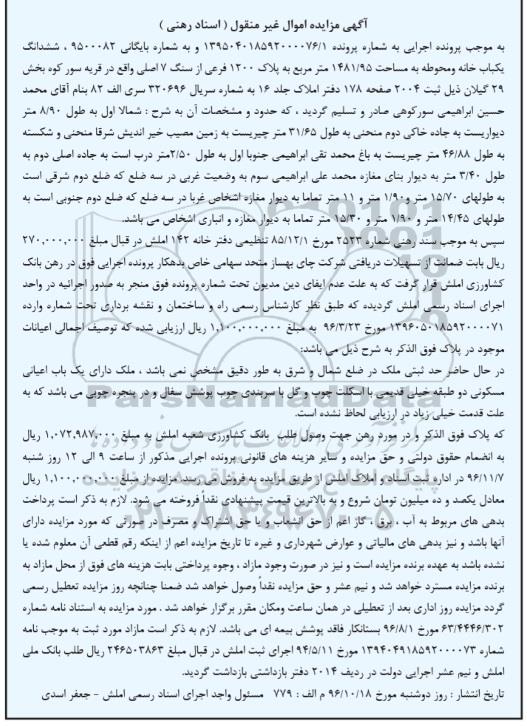 آگهی مزایده اموال غیر منقول ( اسناد رهنی )
به موجب پرونده اجرایی به شماره پرونده ۱۳۹۵۰۴۰۱۸۵۹۲۰۰۰۰۷۶/۱ و به شماره بایگانی ۹۵۰۰۰۸۲ ، ششدانگ
یکباب خانه ومحوطه به مساحت ۱۴۸۱/۹۵ متر مربع به پلاک ۱۲۰۰ فرعی از سنگ ۷ اصلی واقع در قریه سور کوه بخش
۲۹ گیلان ذیل ثبت ۲۰۰۴ صفحه ۱۷۸ دفتر املاک جلد ۱۶ به شماره سریال ۳۲۰۶۹۶ سری الف ۸۲ بنام آقای محمد
حسین ابراهیمی سورکوهی صادر و تسلیم گردید ، که حدود و مشخصات آن به شرح : شمالا اول به طول ۸/۹۰ متر
دیواریست به جاده خاکی دوم منحنی به طول ۳۱/۶۵ متر چپریست به زمین مصیب خیر اندیش شرقا منحنی و شکسته
به طول ۴۶/۸۸ متر چپریست به باغ محمد تقی ابراهیمی جنوبا اول به طول ۲/۵۰متر درب است به جاده اصلی دوم به
طول ۳/۴۰ متر به دیوار بنای مغازه محمد علی ابراهیمی سوم به وضعیت غربی در سه ضلع که ضلع دوم شرقی است
به طولهای ۱۵/۷۰ متر و ۱/۹۰ متر و ۱۱ متر تماما به دیوار مغازه اشخاص غربا در سه ضلع که ضلع دوم جنوبی است به
طولهای ۱۴/۴۵ متر و ۱/۹۰ متر و ۱۵/۳۰ متر تماما به دیوار مغازه و انباری اشخاص می باشد.
سپس به موجب سند رهنی شماره ۲۵۲۳ مورخ ۸۵/۱۲/۱ تنظیمی دفتر خانه ۱۴۲ املش در قبال مبلغ ۲۷۰,۰۰۰,۰۰۰
ریال بابت ضمانت از تسهیلات دریافتی شرکت چای بهساز متحد سهامی خاص بدهکار پرونده اجرایی فوق در رهن بانک
کشاورزی املش قرار گرفت که به علت عدم ایفای دین مدیون تحت شماره پرونده فوق منجر به صدور اجرائیه در واحد
اجرای اسناد رسمی املش گردیده که طبق نظر کارشناس رسمی راه و ساختمان و نقشه برداری تحت شماره وارده
۱۳۹۶۰۵۰۱۸۵۹۲۰۰۰۰۷۱ مورخ ۹۶/۳/۲۳ به مبلغ ۱,۱۰۰,۰۰۰,۰۰۰ ریال ارزیابی شده که توصیف اجمالی اعیانات
موجود در پلاک فوق الذکر به شرح ذیل می باشد:
در حال حاضر حد ثبتی ملک در ضلع شمال و شرق به طور دقیق مشخص نمی باشد ، ملک دارای یک باب اعیانی
مسکونی دو طبقه خیلی قدیمی با اسکلت چوب و گل با سربندی چوب پوشش سفال و در پنجره چوبی می باشد که به
علت قدمت خیلی زیاد در ارزیابی لحاظ نشده است.
که پلاک فوق الذکر و در مورد رهن جهت وصول طلب بانک کشاورزی شعبه املش به مبلغ ۱,۰۷۲,۹۸۷,۰۰۰ ریال
به انضمام حقوق دولتی و حق مزایده و سایر هزینه های قانونی پرونده اجرایی مذکور از ساعت ۹ الی ۱۲ روز شنبه
۹۶/۱۱/۷ در اداره ثبت اسناد و املاک املش از طریق مزایده به فروش می رسد مزایده از مبلغ ۱,۱۰۰,۰۰۰,۰۰۰ ریال
معادل یکصد و ده میلیون تومان شروع و به بالاترین قیمت پیشنهادی نقداً فروخته می شود. لازم به ذکر است پرداخت
بدهی های مربوط به آب ، برق ، گاز اعم از حق انشعاب و یا حق اشتراک و مصرف در صورتی که مورد مزایده دارای
آنها باشد و نیز بدهی های مالیاتی و عوارض شهرداری و غیره تا تاریخ مزایده اعم از اینکه رقم قطعی آن معلوم شده یا
نشده باشد به عهده برنده مزایده است و نیز در صورت وجود مازاد ، وجوه پرداختی بابت هزینه های فوق از محل مازاد به
برنده مزایده مسترد خواهد شد و نیم عشر و حق مزایده نقداً وصول خواهد شد ضمنا چنانچه روز مزایده تعطیل رسمی
گردد مزایده روز اداری بعد از تعطیلی در همان ساعت ومکان مقرر برگزار خواهد شد . مورد مزایده به استناد نامه شماره
۶۳/۴۴۴۶/۳۰۲ مورخ ۹۶/۸/۱ بستانکار فاقد پوشش بیمه ای می باشد. لازم به ذکر است مازاد مورد ثبت به موجب نامه
شماره ۱۳۹۴۰۴۹۱۸۵۹۲۰۰۰۰۷۳ مورخ ۹۴/۵/۱۱ اجرای ثبت املش در قبال مبلغ ۲۴۶۵۰۳۸۶۳ ریال طلب بانک ملی
املش و نیم عشر اجرایی دولت در ردیف ۲۰۱۴ دفتر بازداشتی بازداشت گردید.
تاریخ انتشار : روز دوشنبه مورخ ۹۶/۱۰/۱۸ م الف : ۷۷۹ مسئول واحد اجرای اسناد رسمی املش - جعفر اسدی